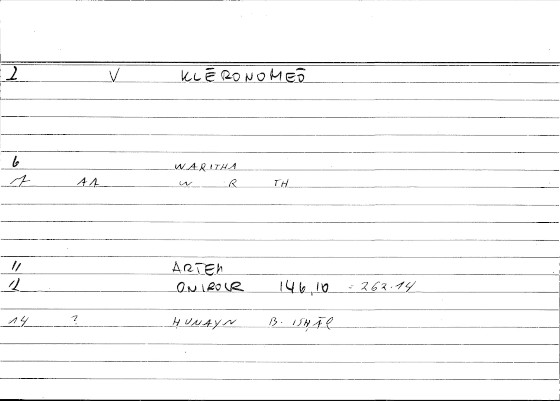 2 V KLĒRONOMEŌ
6 WARITHA
7 AA W R TH
11 ARTEM
12 ONIROCR 146,10 = 262.14
14 ? HUNAYN B. ISHĀQ